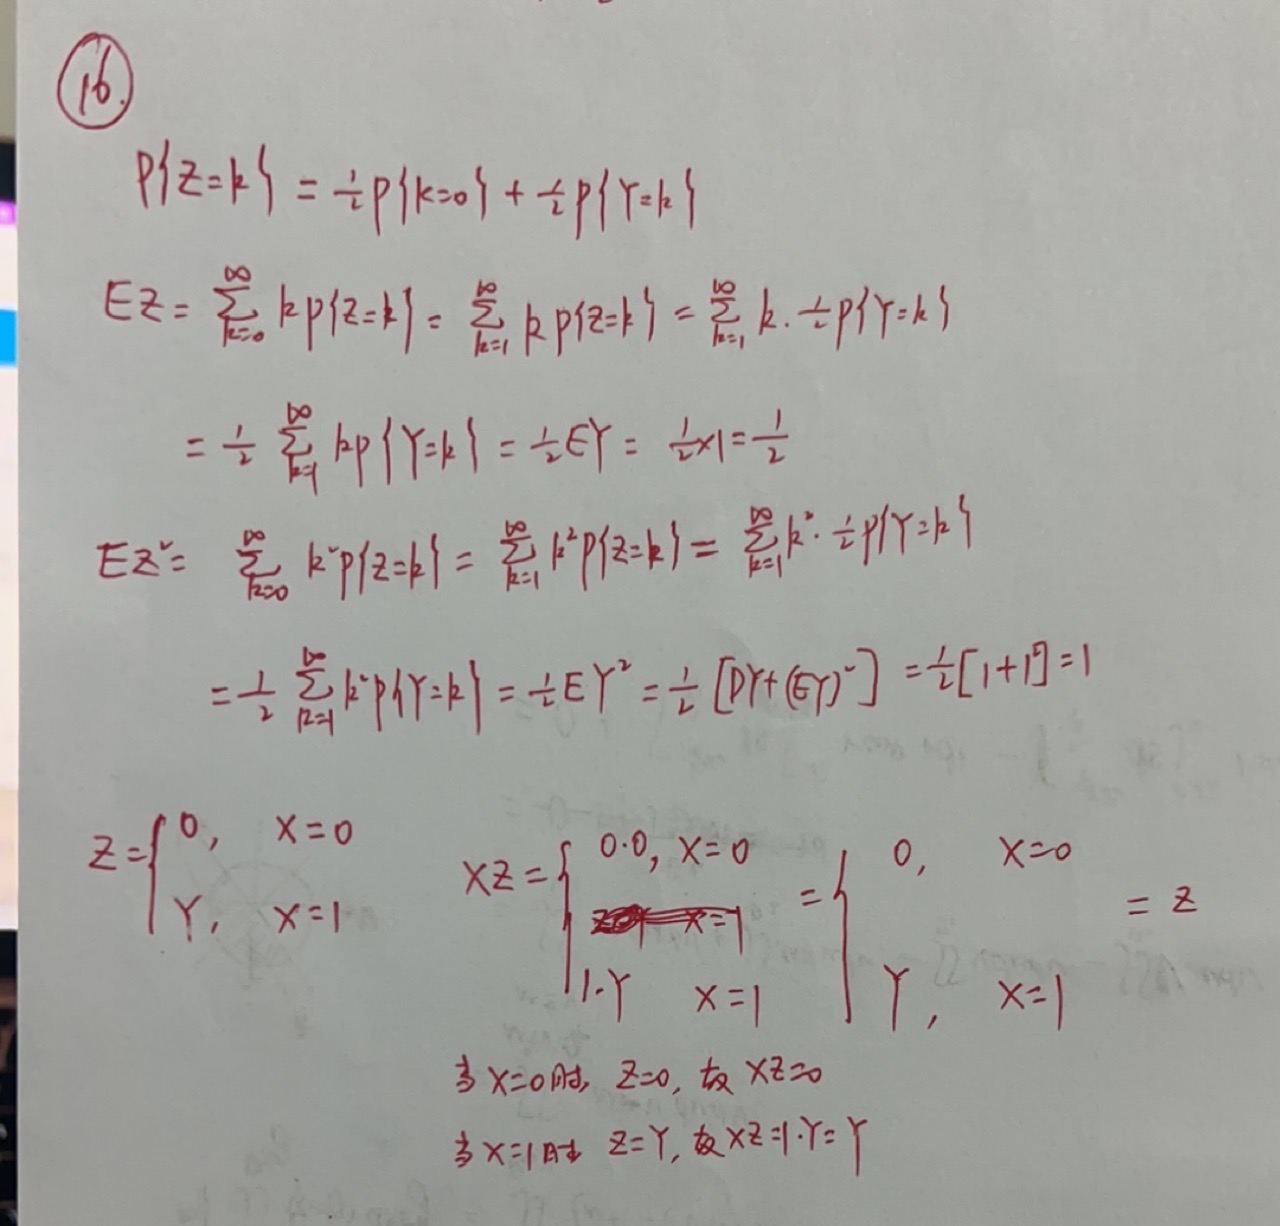 16.
P{Z=k} = ½P{k=0} + ½P{Y=k}
EZ = ∑_{k=0}^{∞} kP{Z=k} = ∑_{k=1}^{∞} kP{Z=k} = ∑_{k=1}^{∞} k·½P{Y=k}
= ½ ∑_{k=1}^{∞} kP{Y=k} = ½EY = ½×1 = ½
EZ² = ∑_{k=0}^{∞} k²P{Z=k} = ∑_{k=1}^{∞} k²P{Z=k} = ∑_{k=1}^{∞} k²·½P{Y=k}
= ½ ∑_{k=1}^{∞} k²P{Y=k} = ½EY² = ½[DY+(EY)²] = ½[1+1²] = 1
Z = { 0, X=0
Y, X=1
XZ = { 0·0, X=0
1·Y X=1
= { 0, X=0
Y, X=1
= Z
当X=0时, Z=0, 故XZ=0
当X=1时 Z=Y, 故XZ=1·Y=Y